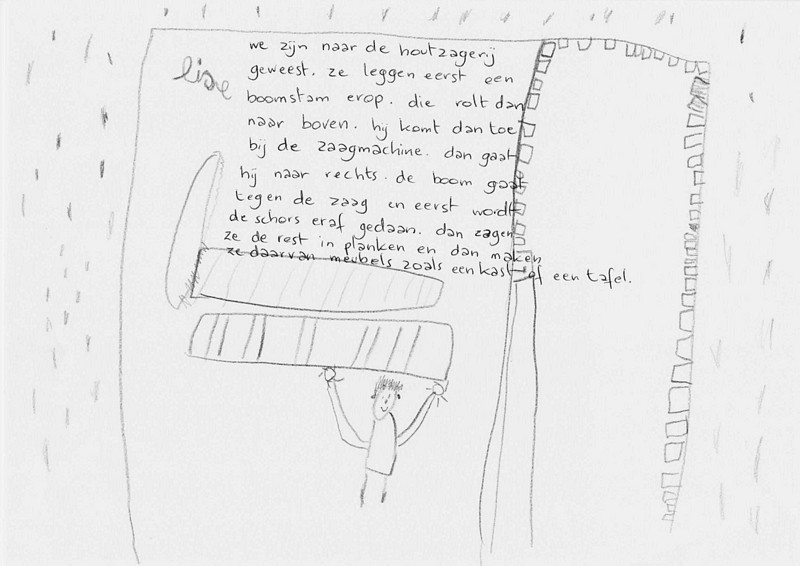 we zijn naar de houtzagerij
lise
geweest. ze leggen eerst een
boomstam erop. die rolt dan
naar boven. hij komt dan toe
bij de zaagmachine. dan gaat
hij naar rechts. de boom gaat
tegen de zaag en eerst wordt
de schors eraf gedaan. dan zagen
ze de rest in planken en dan maken
ze daarvan meubels zoals een kast of een tafel.